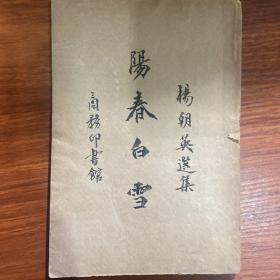 楊朝英選集
陽春白雪
商務印書館